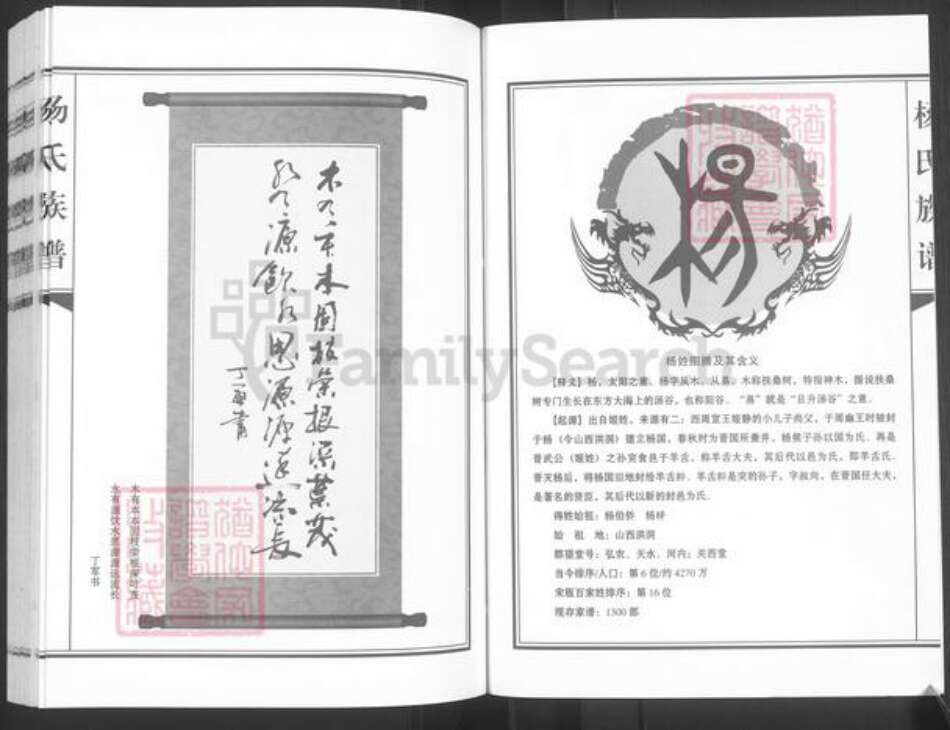 杨氏族谱
木有本本固枝荣根深叶茂
水有源饮水思源源远流长
丁军书
木有本本固枝荣根深叶茂
水有源饮水思源源远流长
丁军书
杨氏族谱
杨
杨姓图腾及其含义
【释义】杨，太阳之意。杨字从木，从昜。木称扶桑树，特指神木，据说扶桑
树专门生长在东方大海上的汤谷，也称阳谷。“昜”就是“日升汤谷”之意。
【起源】出自姬姓，来源有二：西周宣王姬静的小儿子尚父，于周幽王时被封
于杨（今山西洪洞）建立杨国，春秋时为晋国所兼并，杨侯子孙以国为氏。再是
晋武公（姬姓）之孙突食邑于羊舌，称羊舌大夫，其后代以邑为氏，即羊舌氏。
晋灭杨后，将杨国旧地封给羊舌肸。羊舌肸是突的孙子，字叔向，在晋国任大夫，
是著名的贤臣，其后代以新的封邑为氏。
得姓始祖：杨伯侨 杨杼
始 祖 地：山西洪洞
郡望堂号：弘农、天水、河内；关西堂
当今排序/人口：第6位/约4270万
宋版百家姓排序：第16位
现存家谱：1300部
FamilySearch